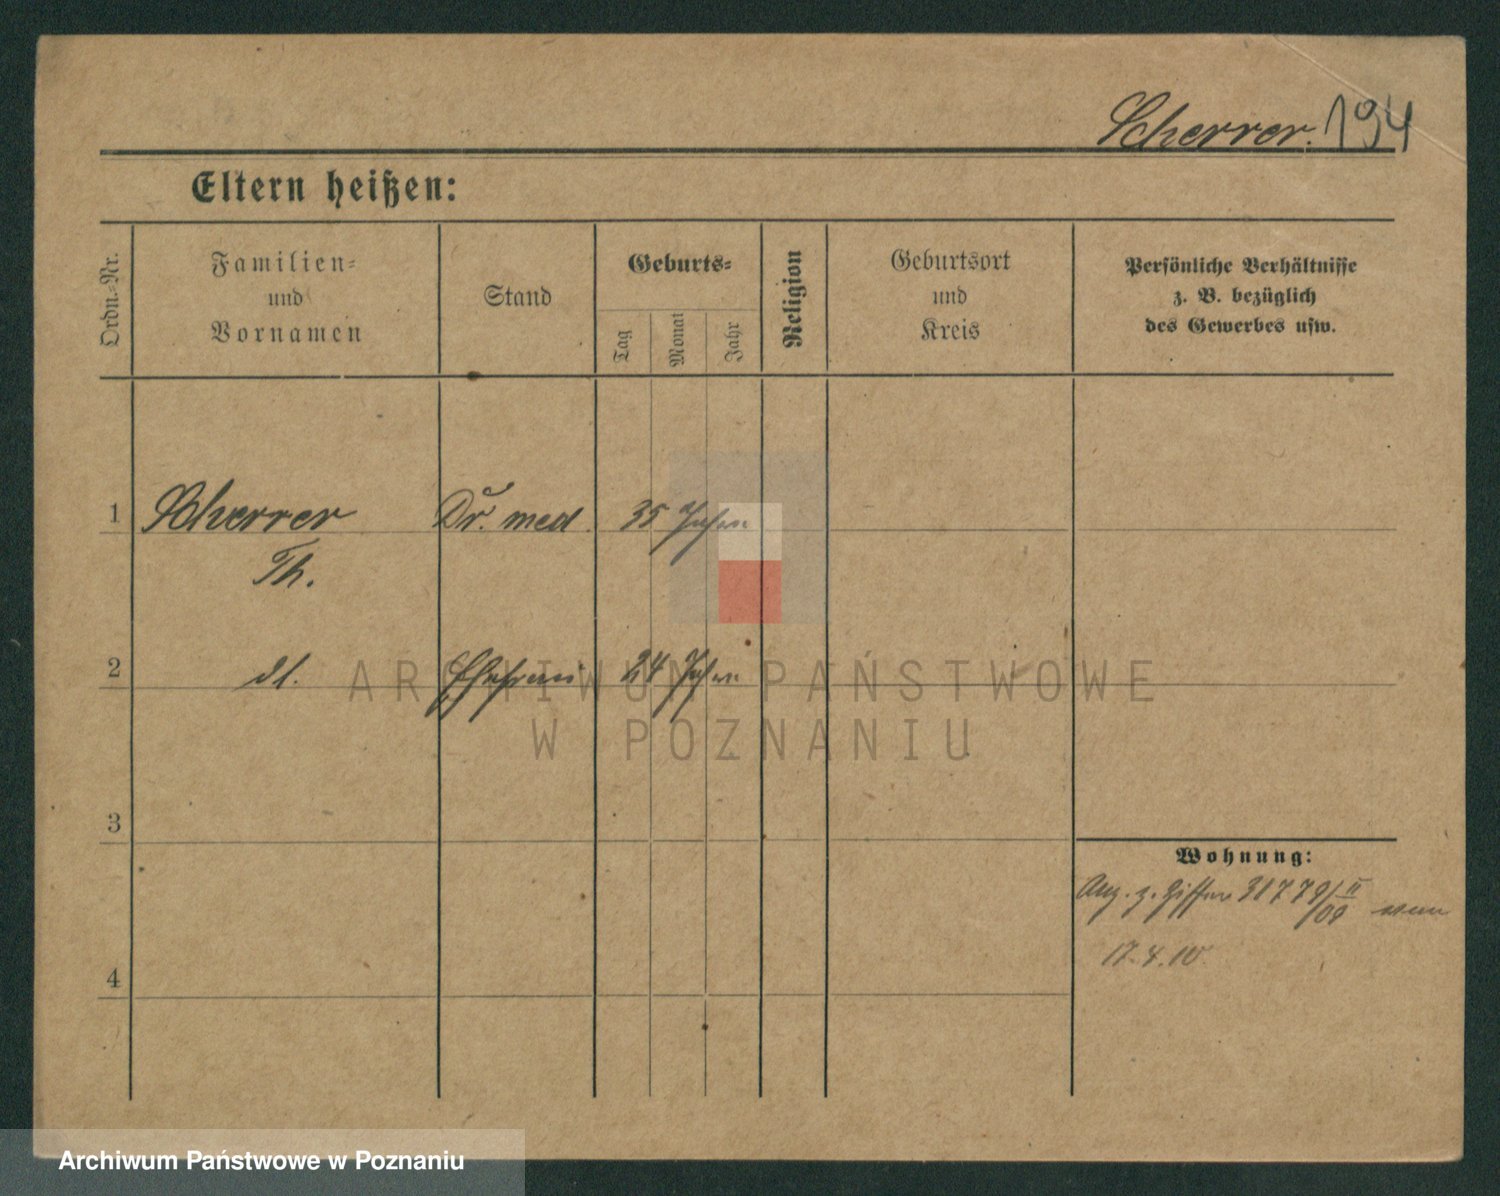 Scherrer. 194
Eltern heißen:
Ordn.-Nr.
Familien-
und
Vornamen
Stand
Geburts-
Tag
Monat
Jahr
Religion
Geburtsort
und
Kreis
Persönliche Verhältnisse
z. B. bezüglich
des Gewerbes usw.
1 Scherrer Dr. med. 35 Jahre
Th.
2 dt. Ehefrau 24 Jahre
ARCHIWUM PAŃSTWOWE
W POZNANIU
3
Wohnung:
Anz. z. Ziffer 31779/II/09
17.4.10
4
Archiwum Państwowe w Poznaniu